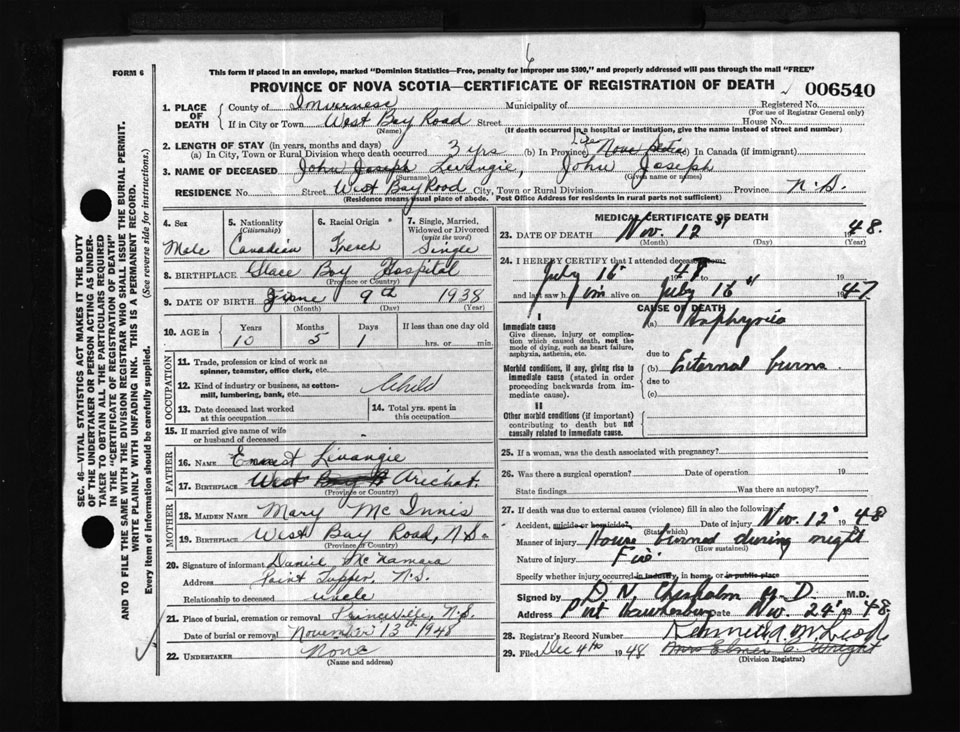 FORM 6
This form if placed in an envelope, marked "Dominion Statistics—Free, penalty for improper use $300," and properly addressed will pass through the mail "FREE"
6
PROVINCE OF NOVA SCOTIA—CERTIFICATE OF REGISTRATION OF DEATH
006540
1. PLACE OF DEATH
County of Inverness Municipality of Registered No.
(For use of Registrar General only)
If in City or Town West Bay Road Street House No.
(Name) (If death occurred in a hospital or institution, give the name instead of street and number)
2. LENGTH OF STAY (in years, months and days)
(a) In City, Town or Rural Division where death occurred 3 yrs (b) In Province Life Nova Scotia (c) In Canada (if immigrant)
3. NAME OF DECEASED John Joseph Levangie, John Joseph
(Surname) (Given name or names)
RESIDENCE No. Street West Bay Road City, Town or Rural Division Province N.S.
(Residence means usual place of abode. Post Office Address for residents in rural parts not sufficient)
4. Sex
Male
5. Nationality (Citizenship)
Canadian
6. Racial Origin
French
7. Single, Married, Widowed or Divorced (write the word)
Single
8. BIRTHPLACE Glace Bay Hospital
(Province or Country)
9. DATE OF BIRTH June 9th 1938
(Month) (Day) (Year)
10. AGE in Years Months Days If less than one day old
10 5 1 hrs. or min.
OCCUPATION
11. Trade, profession or kind of work as spinner, teamster, office clerk, etc.
12. Kind of industry or business, as cotton-mill, lumbering, bank, etc. Child
13. Date deceased last worked at this occupation
14. Total yrs. spent in this occupation
15. If married give name of wife or husband of deceased
FATHER
16. NAME Ernest Levangie
17. BIRTHPLACE West Bay R Arichat.
(Province or Country)
MOTHER
18. MAIDEN NAME Mary McInnis
19. BIRTHPLACE West Bay Road, N.S.
(Province or Country)
20. Signature of informant Daniel McNamara
Address Point Tupper, N.S.
Relationship to deceased Uncle
21. Place of burial, cremation or removal Princeville, N.S.
Date of burial or removal November 13th 1948
22. UNDERTAKER None
(Name and address)
MEDICAL CERTIFICATE OF DEATH
23. DATE OF DEATH Nov. 12 1948.
(Month) (Day) (Year)
24. I HEREBY CERTIFY that I attended deceased from:
July 16 1947 to 19
and last saw him alive on July 16 1947.
CAUSE OF DEATH
I
Immediate cause
Give disease, injury or complication which caused death, not the mode of dying, such as heart failure, asphyxia, asthenia, etc.
(a) Asphyxia
due to
Morbid conditions, if any, giving rise to immediate cause (stated in order proceeding backwards from immediate cause).
(b) External burns
due to
(c)
II
Other morbid conditions (if important) contributing to death but not causally related to immediate cause.
25. If a woman, was the death associated with pregnancy?
26. Was there a surgical operation? Date of operation 19
State findings Was there an autopsy?
27. If death was due to external causes (violence) fill in also the following:
Accident, suicide or homicide? Date of injury Nov. 12 1948
(State which)
Manner of injury House burned during night
(How sustained)
Nature of injury Fire
Specify whether injury occurred in industry, in home, or in public place
Signed by D. N. Chisholm M.D. M.D.
Address Port Hawkesbury Nov. 24 1948.
28. Registrar's Record Number Kenneth McLeod
29. Filed Dec 4th 1948 Mrs Elmer C. Wright
(Division Registrar)
SEC. 46—VITAL STATISTICS ACT MAKES IT THE DUTY
OF THE UNDERTAKER OR PERSON ACTING AS UNDER-
TAKER TO OBTAIN ALL THE PARTICULARS REQUIRED
IN THE "CERTIFICATE OF REGISTRATION OF DEATH"
AND TO FILE THE SAME WITH THE DIVISION REGISTRAR WHO SHALL ISSUE THE BURIAL PERMIT.
WRITE PLAINLY WITH UNFADING INK. THIS IS A PERMANENT RECORD.
Every item of Information should be carefully supplied. (See reverse side for instructions.)